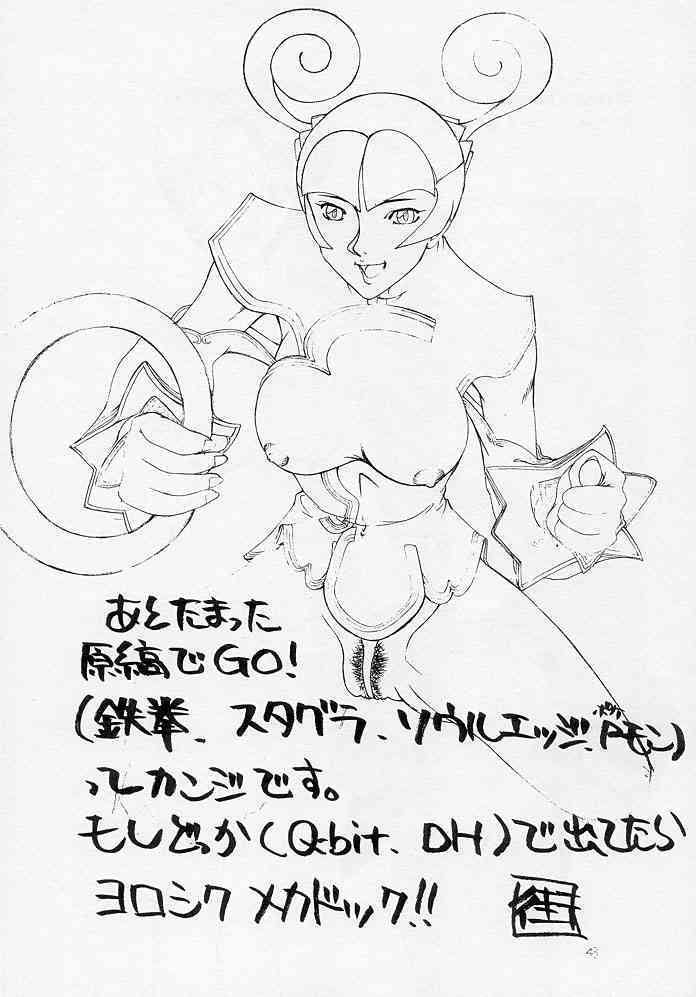 あとたまった
原縞でGO!
(鉄拳、スタグラ、ソウルエッジ、Pモン)
ってカンジです。
もしどっか(Q-bit、DH)で出てたら
ヨロシク メカドック!!